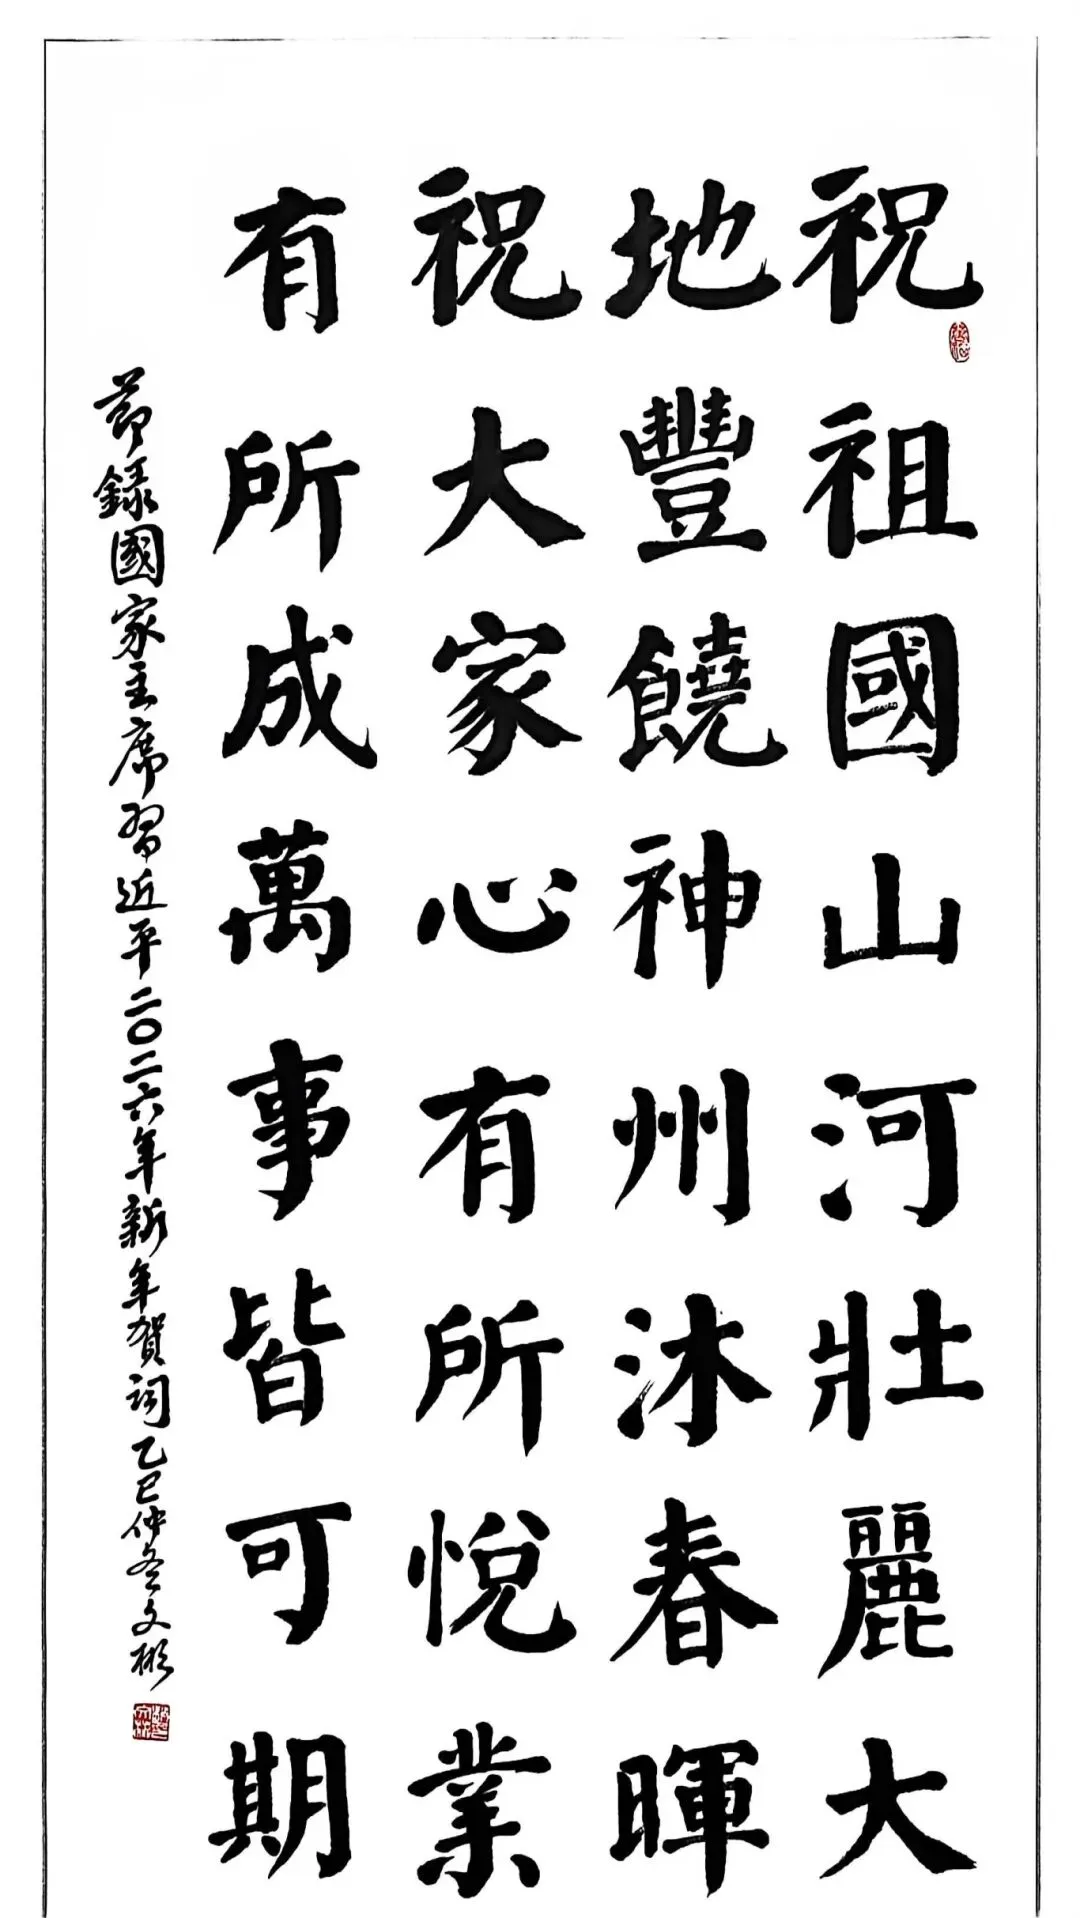 祝祖國山河壯麗大
地豐饒神州沐春暉
祝大家心有所悅業
有所成萬事皆可期
節錄國家主席習近平二〇二六年新年賀詞乙巳仲冬文彬